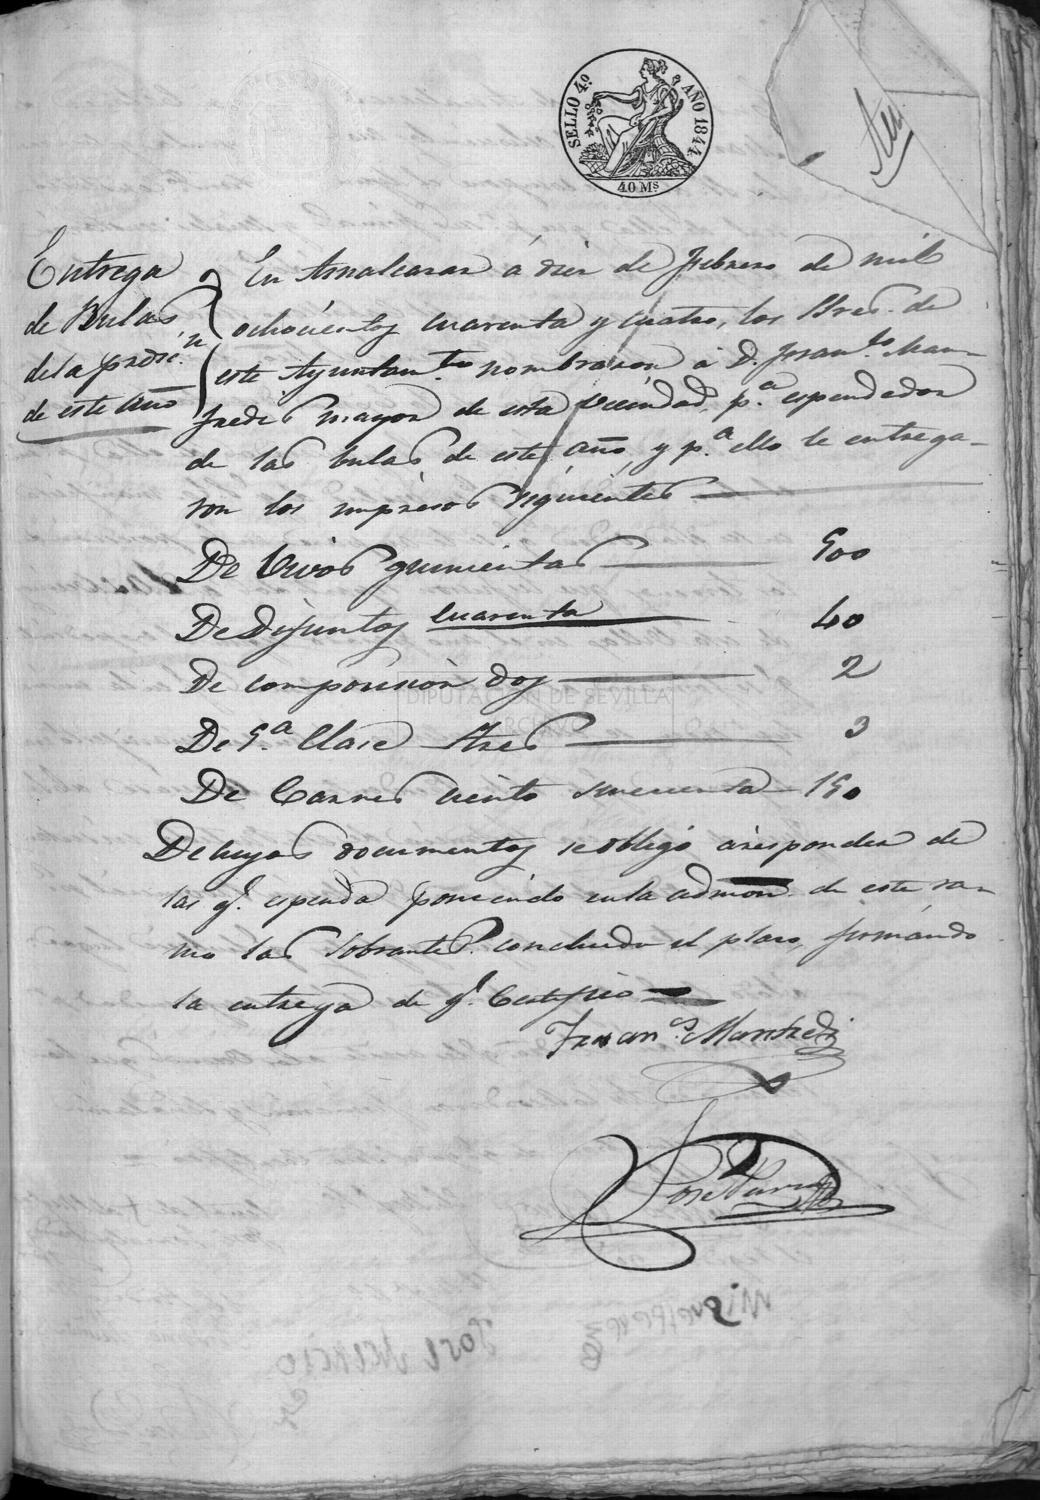 SELLO 4º AÑO 1844
40 Ms
Entrega
de Bulas
de la predic.n
de este año
En Aznalcazar á diez de Febrero de mil
ochocientos cuarenta y cuatro, los Sres. de
este Ayuntam.to nombraron á D. Fran.co Man-
fredi mayor de esta vecindad, p.a espendedor
de las bulas de este año, y p.a ello le entrega-
ron los impresos siguientes
De Vivos quinientas 500
De Difuntos cuarenta 40
De composicion dos 2
DIPUTACION DE SEVILLA
ARCHIVO
De 5.a Clase tres 3
De Carnes ciento cincuenta 150
De cuyos documentos se obligó á responder de
las q.e espenda poniendo en la admon. de este ra-
mo las sobrantes concluido el plazo, firmando
la entrega de q.e Certifico
Fran.co Manfredi
Jose